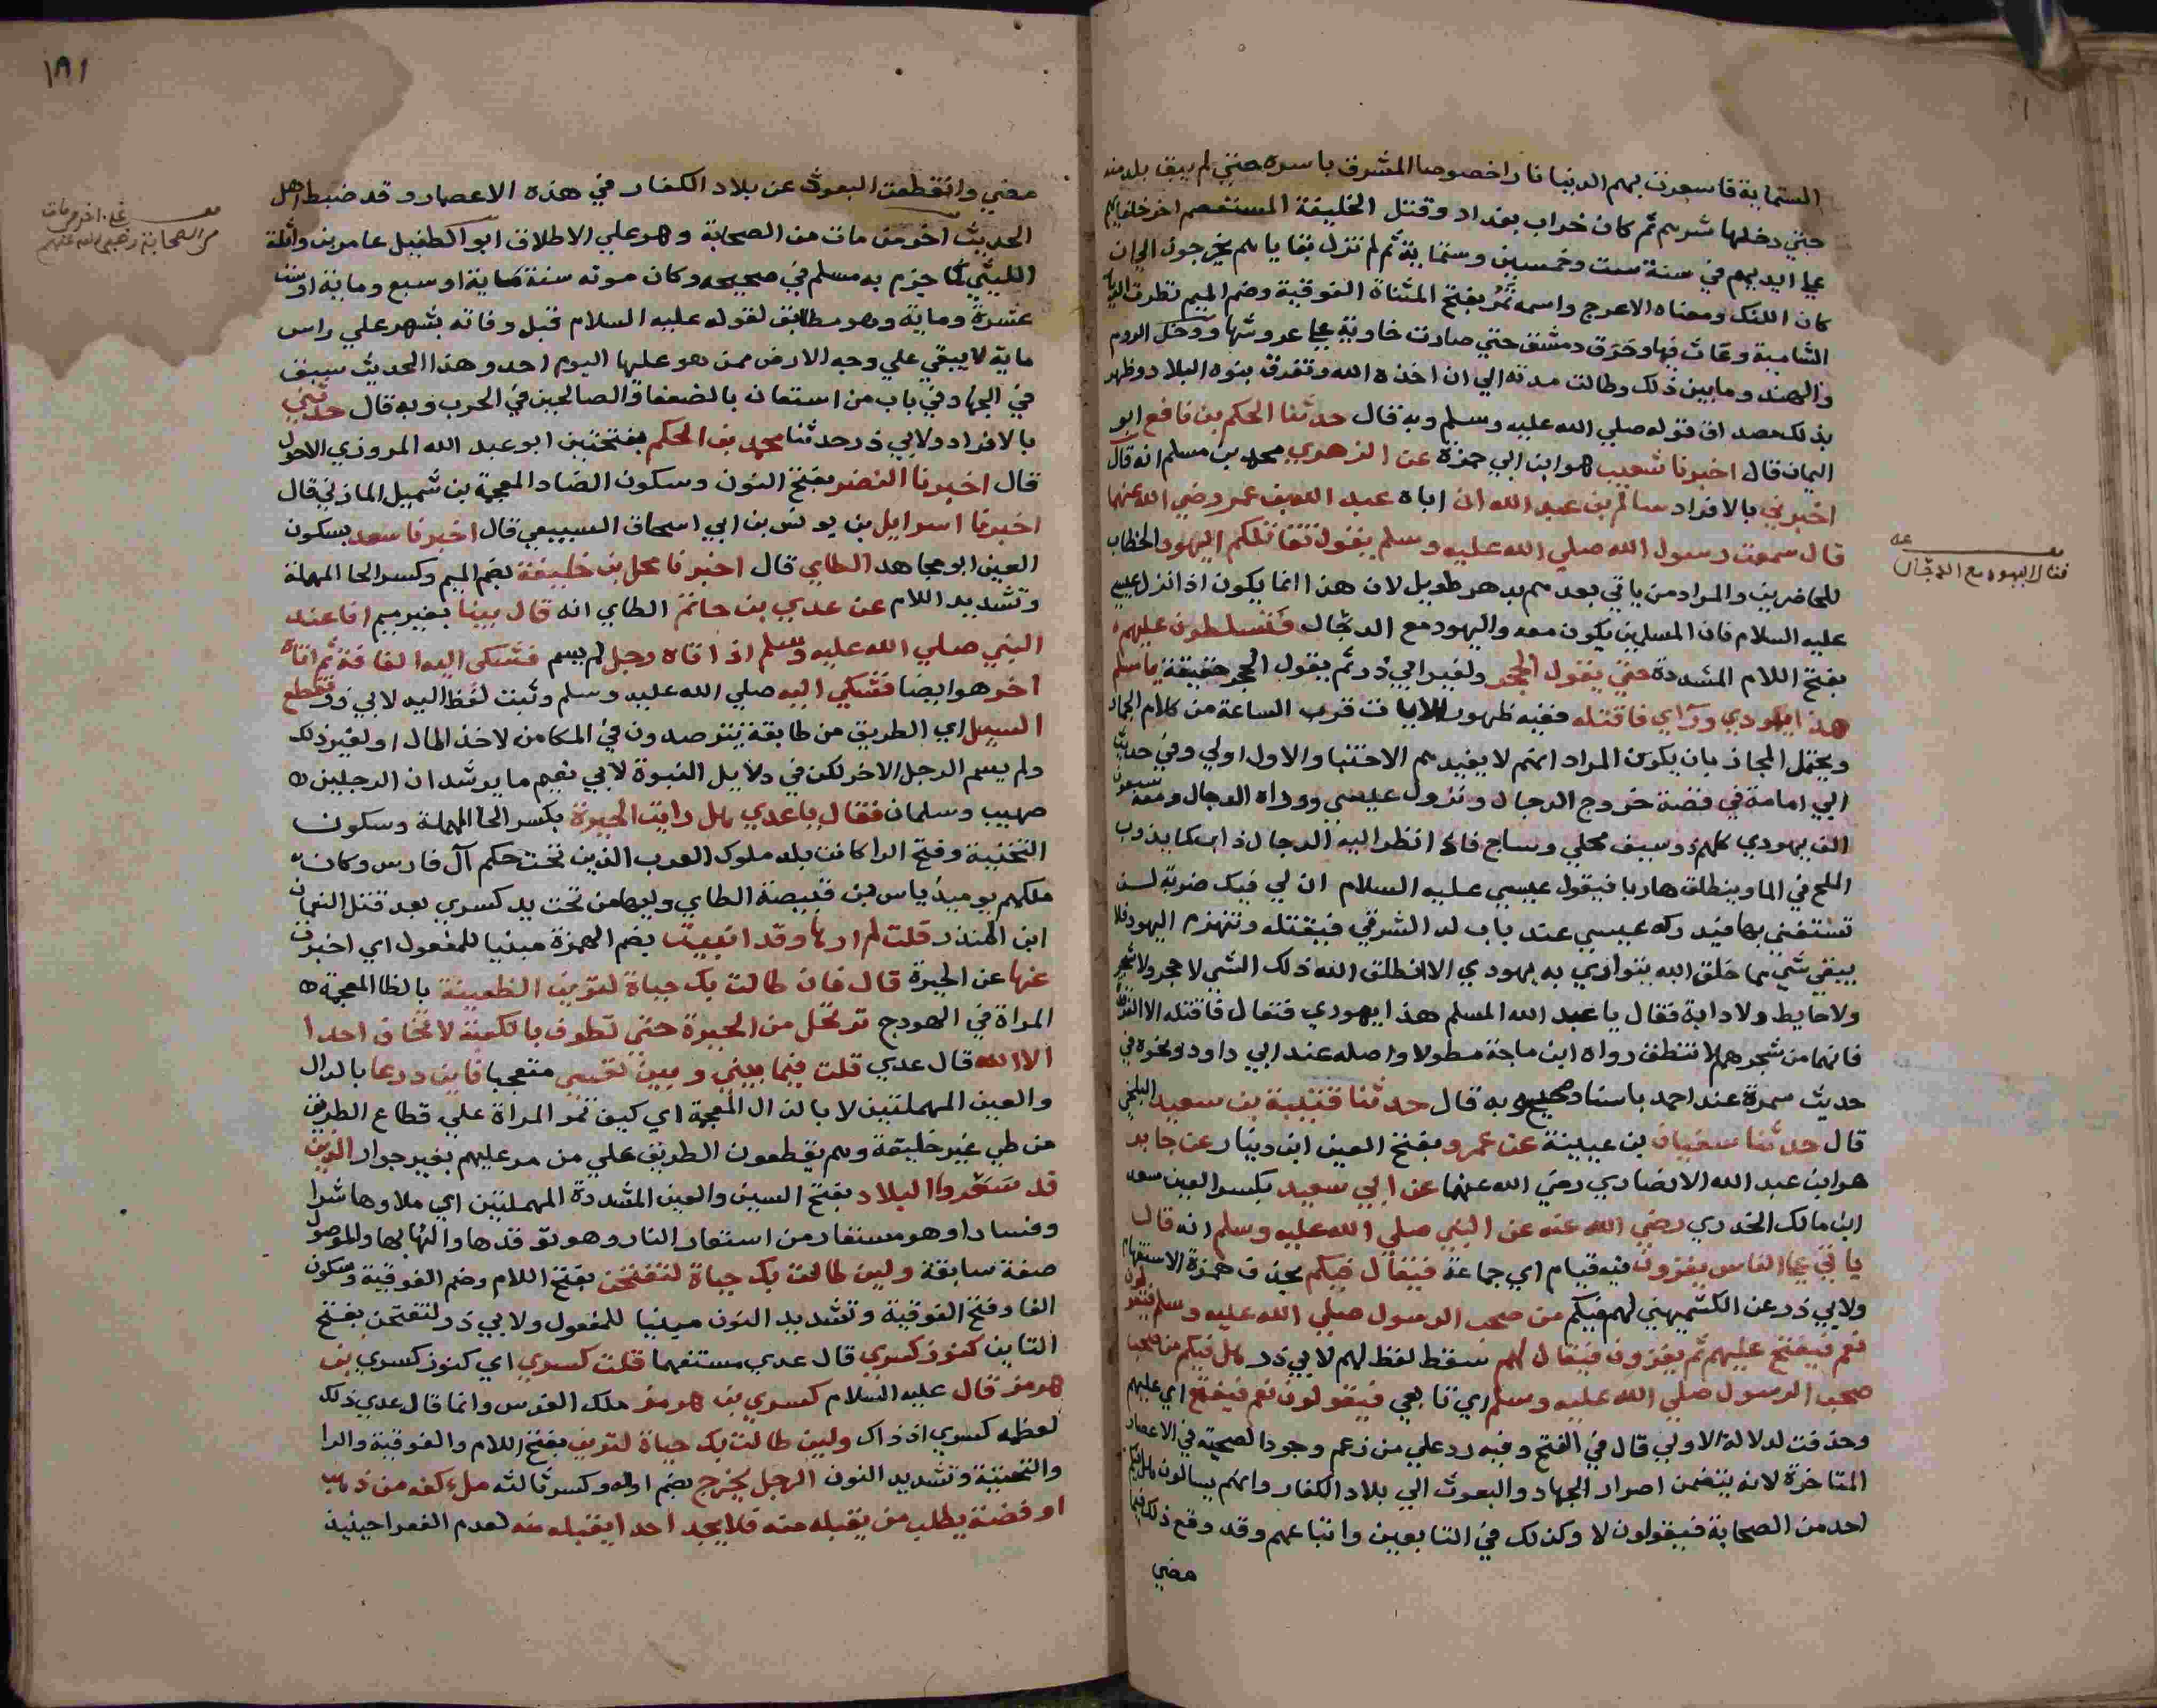 الستماية فاسعرت بهم الدنيا نارا خصوصا المشرق باسره حتى لم يبق بلد منه
حتى دخلها شرهم ثم كان خراب بغداد وقتل الخليفة المستعصم اخر خلفايهم
على ايديهم في سنة ست وخمسين وستماية ثم لم تزل بقاياهم يخرجون الى ان
كان اللنك ومعناه الاعرج واسمه تمر بفتح المثناة الفوقية وضم الميم فطرق الديار
الشامية وعاث فيها وحرق دمشق حتى صارت خاوية على عروشها ودخل الروم
والهند وما بين ذلك وطالت مدته الى ان اخذه الله وتفرق بنوه البلاد وظهر
بذلك مصداق قوله صلى الله عليه وسلم وبه قال حدثنا الحكم بن نافع ابو
اليمان قال اخبرنا شعيب هو ابن ابي حمزة عن الزهري محمد بن مسلم انه قال
اخبرني بالافراد سالم بن عبد الله ان اباه عبد الله بن عمر رضي الله عنهما
قال سمعت رسول الله صلى الله عليه وسلم يقول تقاتلكم اليهود الخطاب
للحاضرين والمراد من ياتي بعدهم بدهر طويل لان هذا انما يكون اذا نزل عيسى
عليه السلام فان المسلمين يكون معه واليهود مع الدجال فتسلطون عليهم
بفتح اللام المشددة حتى يقول الحجر ولغير ابي ذر ثم يقول الحجر حقيقة يا مسلم
هذا يهودي وراي فاقتله ففيه ظهور الايات قرب الساعة من كلام الجماد
ويحتمل المجاز بان يكون المراد انهم لا يفيدهم الاختبا والاول اولى وفي حديث
ابي امامة في قصة خروج الدجال ونزول عيسى ووراه الدجال ومعه سبعون
الف يهودي كلهم ذو سيف محلى وساج فاذا نظر اليه الدجال ذاب كما يذوب
الملح في الما وينطلق هاربا فيقول عيسى عليه السلام ان لي فيك ضربة لن
تستبقني بها فيدركه عيسى عند باب لد الشرقي فيقتله وتنهزم اليهود فلا
يبقى شي مما خلق الله يتوارى به يهودي الا انطلق الله ذلك الشي لا حجر ولا شجر
ولا حايط ولا دابة فقال يا عبد الله المسلم هذا يهودي فتعال فاقتله الا الغرقد
فانها من شجرهم لا تنطق رواه ابن ماجة مطولا واصله عند ابي داود ونحوه في
حديث سمرة عند احمد باسناد صحيح وبه قال حدثنا قتيبة بن سعيد البلخي
قال حدثنا سفيان بن عيينة عن عمرو بفتح العين ابن دينار عن جابر
هو ابن عبد الله الانصاري رضي الله عنهما عن ابي سعيد بكسر العين سعد
ابن مالك الخدري رضي الله عنه عن النبي صلى الله عليه وسلم انه قال
ياتي على الناس يغزون فيه فيام اي جماعة فيقال فيكم بحذف همزة الاستفهام
ولابي ذر عن الكشميهني لهم فيكم من صحب الرسول صلى الله عليه وسلم فيقولون
نعم فيفتح عليهم ثم يغزون فيقال لهم سقط لفظ لهم لابي ذر هل فيكم من صحب
صحب الرسول صلى الله عليه وسلم اي تابعي فيقولون نعم فيفتح اي عليهم
وحذفت لدلالة الاولى قال في الفتح وفيه رد على من زعم وجود الصحبة في الاعصار
المتاخرة لانه يتضمن اصرار الجهاد والبعوث الى بلاد الكفار وانهم يسالون هل فيكم
احد من الصحابة فيقولون لا وكذلك في التابعين واتباعهم وقد وقع ذلك فيما
مضى
قتال اليهود مع الدجال
١٨١
مضى وانقطعت البعوث عن بلاد الكفار في هذه الاعصار وقد ضبط اهل
الحديث اخر من مات من الصحابة وهو على الاطلاق ابو الطفيل عامر بن واثلة
الليثي كما جزم به مسلم في صحيحه وكان موته سنة ماية او سبع وماية او ست
عشرة وماية وهو مطابق لقوله عليه السلام قبل وفاته بشهر على راس
ماية لا يبقى على وجه الارض ممن هو عليها اليوم احد وهذا الحديث سبق
في الجهاد في باب من استعان بالضعفا والصالحين في الحرب وبه قال حدثني
بالافراد ولابي ذر حدثنا محمد بن الحكم بفتحتين ابو عبد الله المروزي الاحول
قال اخبرنا النضر بفتح النون وسكون الضاد المعجمة بن شميل المازني قال
اخبرنا اسرايل بن يونس بن ابي اسحاق السبيعي قال اخبرنا سعد بسكون
العين ابو مجاهد الطاي قال اخبرنا محل بن خليفة بضم الميم وكسر الحا المهملة
وتشديد اللام عن عدي بن حاتم الطاي انه قال بينا بغير ميم انا عند
النبي صلى الله عليه وسلم اذ اتاه رجل لم يسم فشكى اليه الفاقة ثم اتاه
اخر هو ايضا فشكى اليه صلى الله عليه وسلم وثبت لفظ اليه لابي ذر قطع
السبيل اي الطريق من طايفة يترصدون في المكامن لاخذ المال او لغير ذلك
ولم يسم الرجل الاخر لكن في دلايل النبوة لابي نعيم ما يرشد ان الرجلين
صهيب وسلمان فقال يا عدي هل رايت الحيرة بكسر الحا المهملة وسكون
التحتية وفتح الرا كانت بلد ملوك العرب الذين تحت حكم آل فارس وكان
ملكهم يوميذ ياس بن قبيصة الطاي وليها من تحت يد كسرى بعد قتل النعمان
ابن المنذر قلت لم ارها وقد انبيت بضم الهمزة مبنيا للمفعول اي اخبرت
عنها عن الحيرة قال فان طالت بك حياة لترين الظعينة بالظا المعجمة
المراة في الهودج ترتحل من الحيرة حتى تطوف بالكعبة لا تخاف احدا
الا الله قال عدي قلت فيما بيني وبين نفسي متعجبا فاين دعار بالدال
والعين المهملتين لا بالذال المعجمة اي كيف تمر المراة على قطاع الطريق
من طي غير خايفة وهم يقطعون الطريق على من مر عليهم بغير جوار الذين
قد سعروا البلاد بفتح السين والعين المشددة المهملتين اي ملاوها شرا
وفسادا وهو مستعار من استعار النار وهو توقدها والتهابها والموصول
صفة سابقة ولين طالت بك حياة لتفتحن بفتح اللام وضم الفوقية وسكون
الفا وفتح الفوقية وتشديد النون مبنيا للمفعول ولابي ذر لتفتحن بفتح
التاين كنوز كسرى قال عدي مستفهما قلت كسرى اي كنوز كسرى بن
هرمز قال عليه السلام كسرى بن هرمز ملك الفرس وانما قال عدي ذلك
لعظمه كسرى اذ ذاك ولين طالت بك حياة لترين بفتح اللام والفوقية والرا
والتحتية وتشديد النون الرجل يخرج بضم اوله وكسر ثالثه ملء كفه من ذهب
او فضة يطلب من يقبله منه فلا يجد احدا يقبله منه لعدم الفقرا حينيذ
اخر من مات
من الصحابة رضي الله عنهم